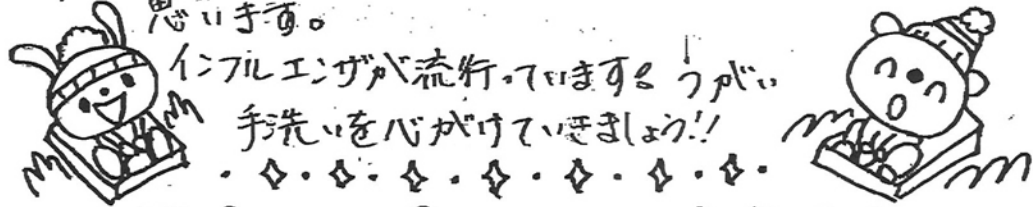 思います。
インフルエンザが流行っています。うがい
手洗いを心がけていきましょう!!